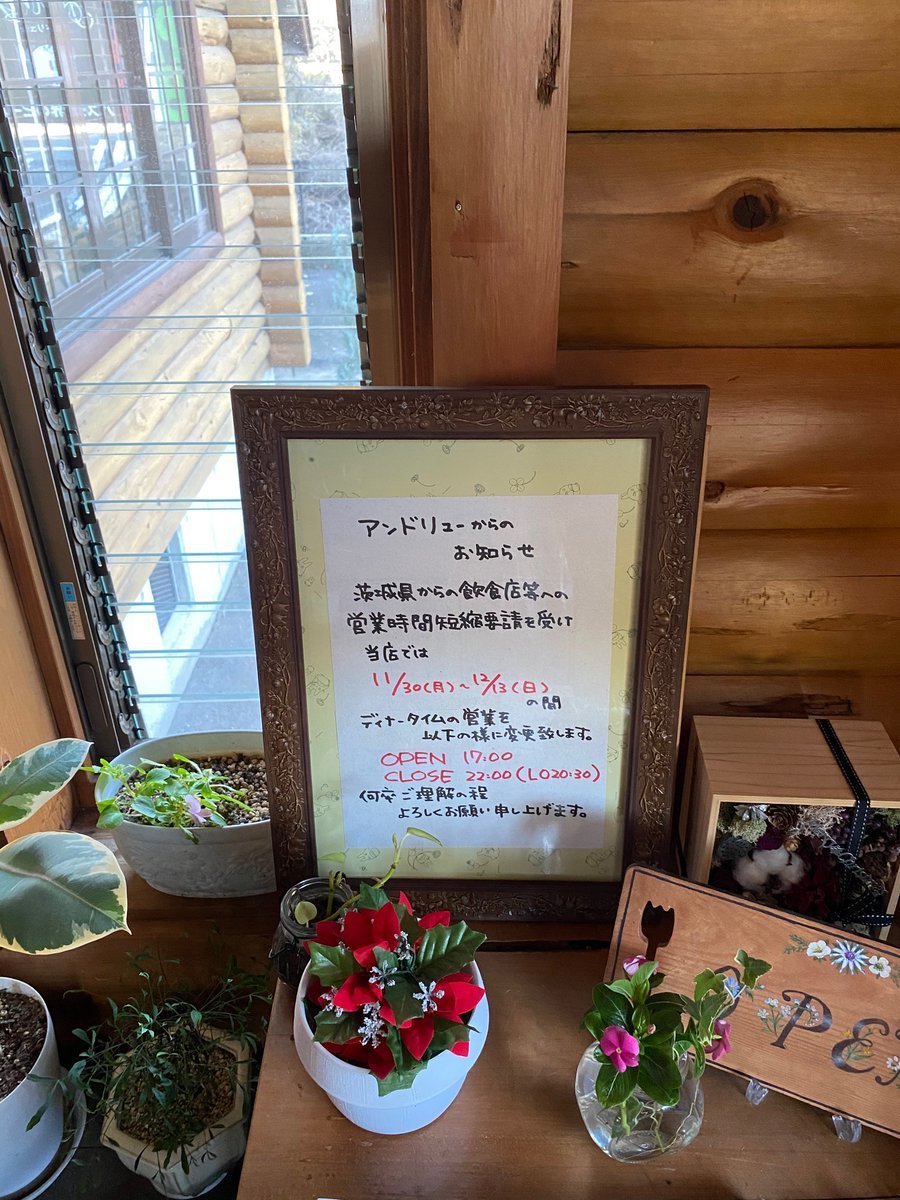 アンドリューからの
お知らせ
茨城県からの飲食店等への
営業時間短縮要請を受け
当店では
11/30(月)~12/13(日)
の間
ディナータイムの営業を
以下の様に変更致します。
OPEN 17:00
CLOSE 22:00(LO20:30)
何卒ご理解の程
よろしくお願い申し上げます。
OPEN